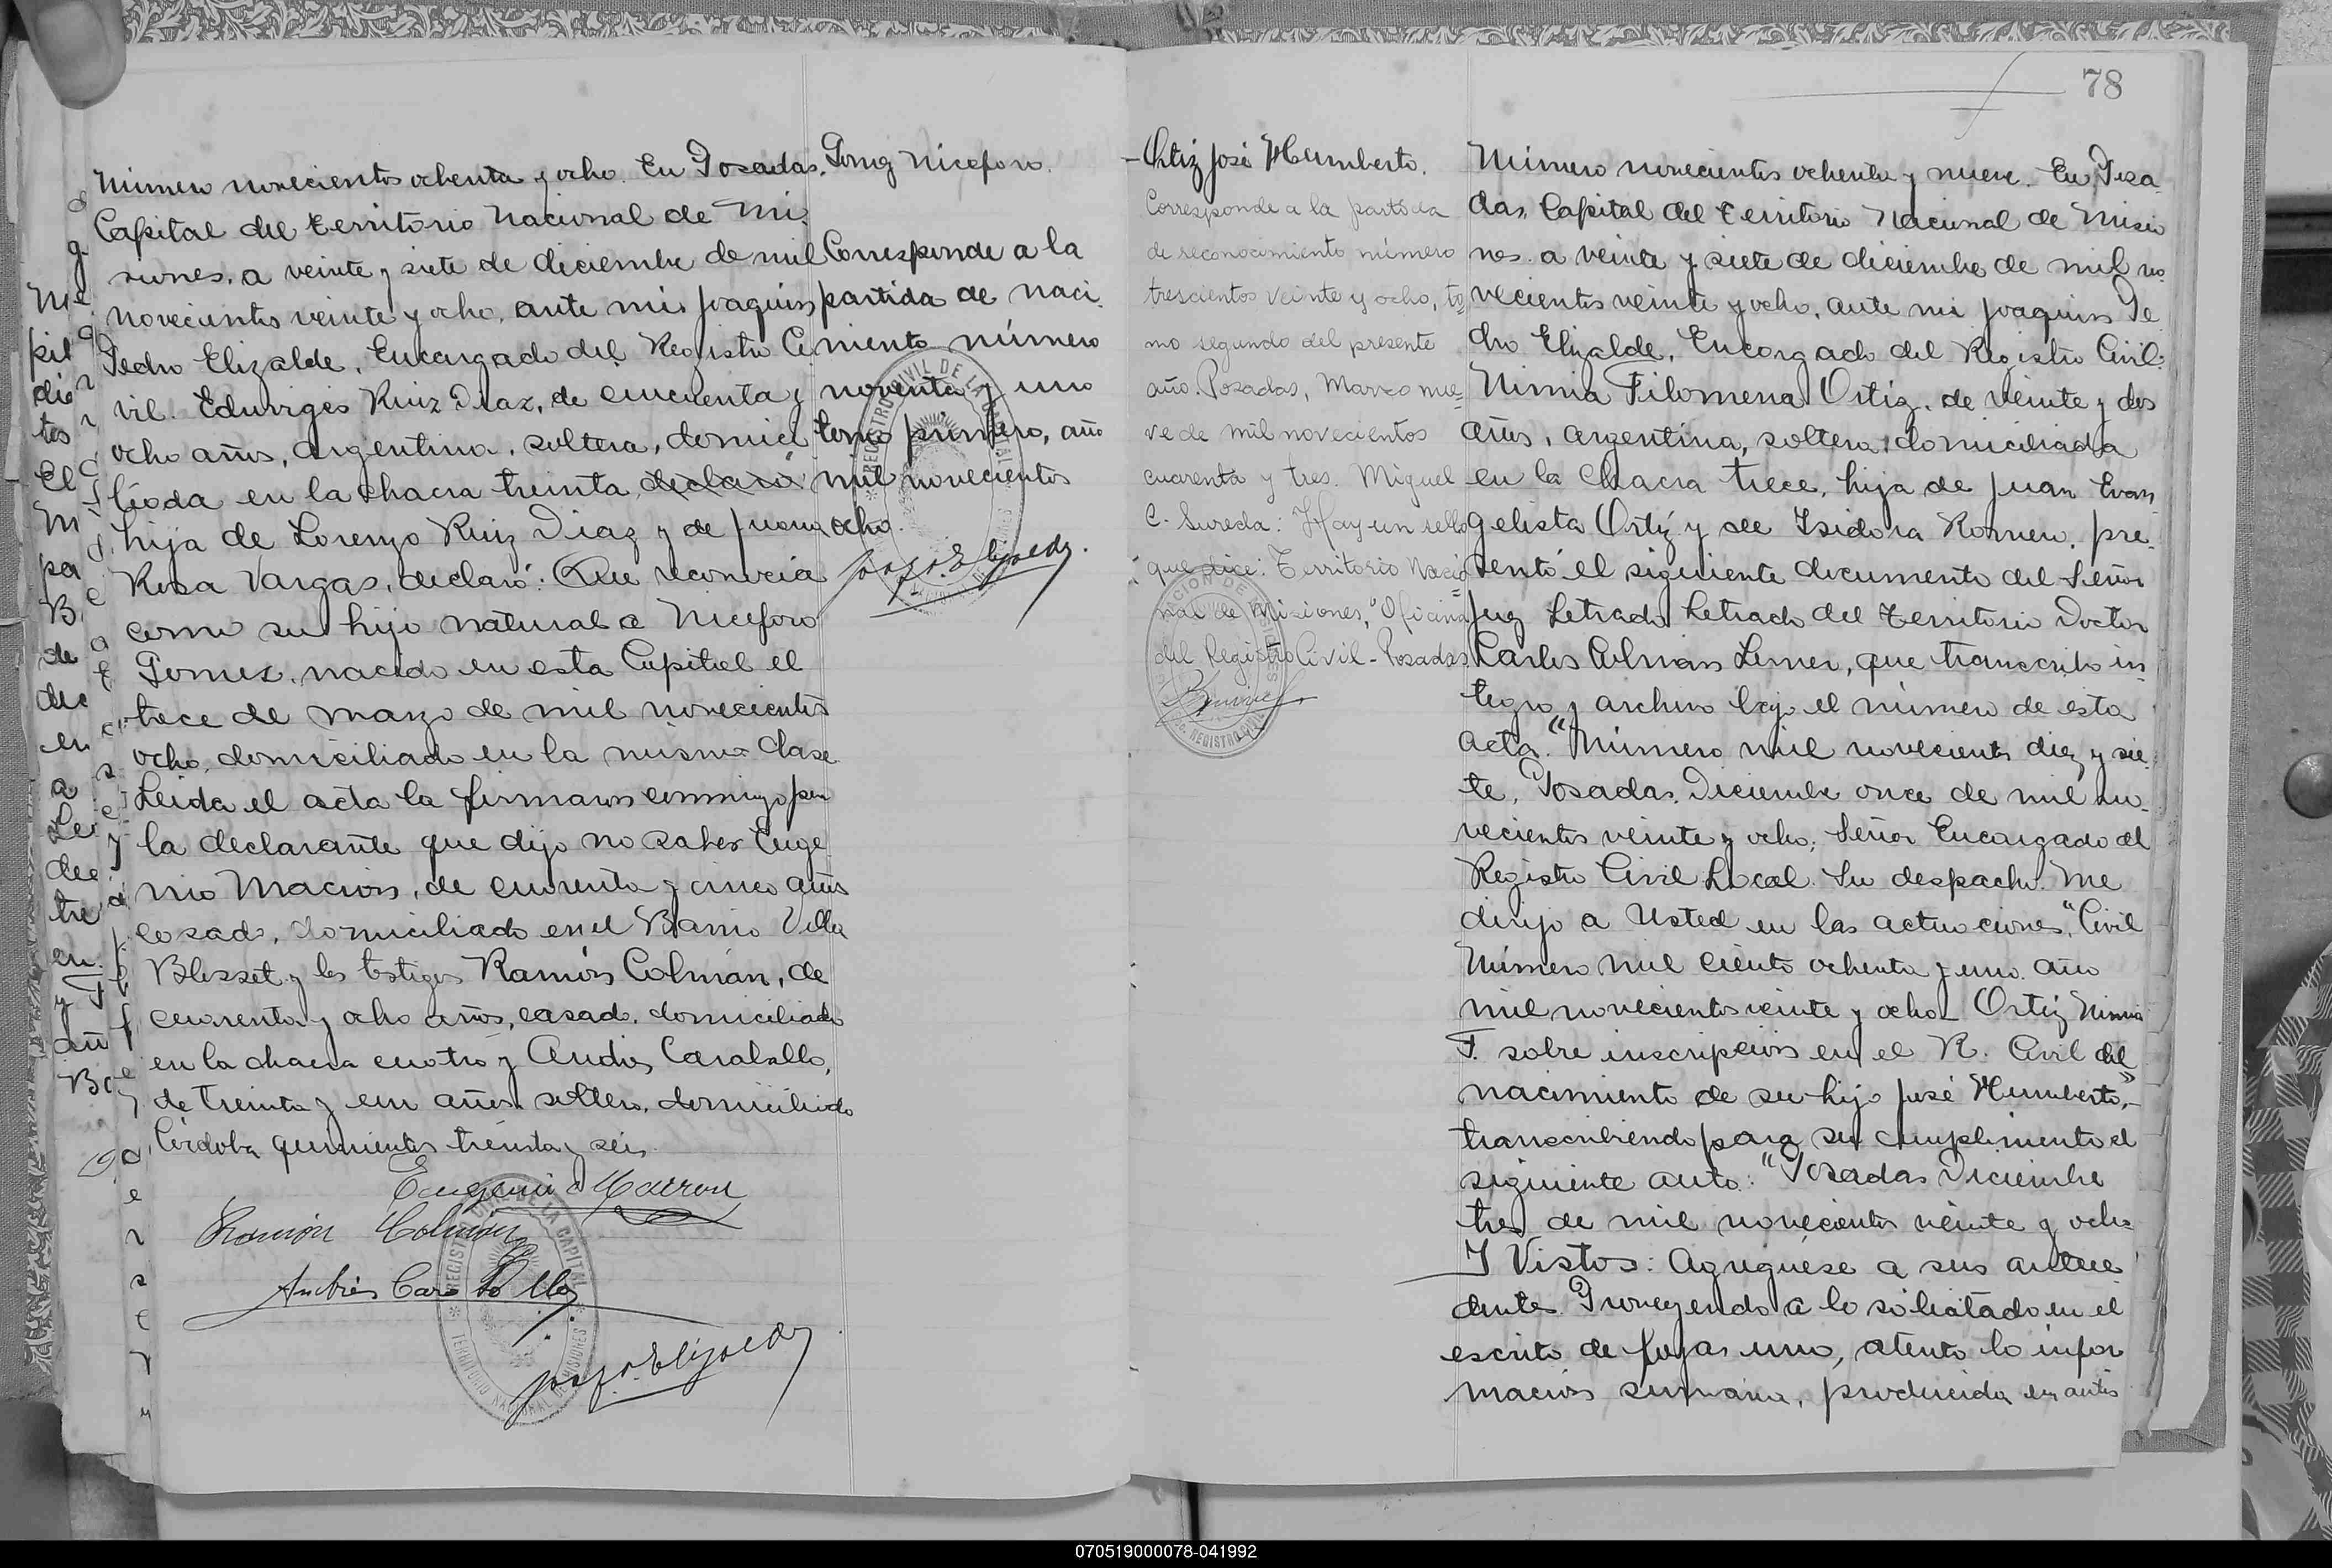 Número novecientos ochenta y ocho. En Posadas,
Capital del Territorio Nacional de Mi
siones, a veinte y siete de diciembre de mil
novecientos veinte y ocho, ante mi Joaquin
Pedro Elizalde, Encargado del Registro Ci
vil. Eduviges Ruiz Diaz, de cincuenta y
ocho años, argentina, soltera, domici
liada en la chacra treinta, declaró:
hija de Lorenzo Ruiz Diaz y de Juana
Rosa Vargas, declaró: Que reconocia
como su hijo natural a Niceforo
Gomez, nacido en esta Capital el
trece de marzo de mil novecientos
ocho, domiciliado en la misma chase
Leida el acta la firmaron conmigo por
la declarante que dijo no saber Euge
nio Macion, de cuarenta y cinco años
casado, domiciliado en el Barrio Villa
Blosset y los testigos Ramón Colmán, de
cuarenta y ocho años, casado, domiciliado
en la chacra cuatro y Andres Caraballo,
de treinta y un años soltero, domiciliado
Córdoba quinientos treinta y seis.
Ramón Colmán
Gomez Niceforo.
Corresponde a la
partida de naci
miento número
noventa y uno
tomo primero, año
mil novecientos
ocho.
REGISTRO CIVIL DE LA CAPITAL
TERRITORIO NACIONAL DE MISIONES
78
Ortiz José Humberto.
Corresponde a la partida
de reconocimiento número
trescientos veinte y ocho, to
mo segundo del presente
año. Posadas, Marzo nue=
ve de mil novecientos
cuarenta y tres. Miguel
C. Sureda: Hay un sello
que dice: Territorio Nacio
nal de Misiones, Oficina
del Registro Civil - Posadas
Número novecientos ochenta y nueve. En Posa
das, Capital del Territorio Nacional de Misio
nes a veinte y siete de diciembre de mil no
vecientos veinte y ocho, ante mi Joaquin Pe
dro Elizalde, Encargado del Registro Civil:
Nimia Filomena Ortiz, de veinte y dos
años, argentina, soltera, domiciliada
en la Chacra trece, hija de Juan Evan
gelista Ortiz y de Isidora Romero, pre-
sentó el siguiente documento del Señor
Juez Letrado Letrado del Territorio Doctor
Carlos Colman Lerner, que transcribo in
tegro y archivo bajo el número de esta
acta. "Número mil novecientos diez y sie-
te, Posadas, Diciembre once de mil no-
vecientos veinte y ocho; Señor Encargado del
Registro Civil Local. Su despacho. Me
dirijo a Usted en las actuaciones, "Civil
Número mil ciento ochenta y uno año
mil novecientos veinte y ocho - Ortiz Nimia
F. sobre inscripción en el R. Civil del
nacimiento de su hijo José Humberto",-
transcribiendo para su cumplimiento el
siguiente auto: "Posadas Diciembre
tres de mil novecientos veinte y ocho
Y Vistos: Agreguese a sus antece
dentes. Proveyendo a lo solicitado en el
escrito de fojas uno, atento lo infor
macion sumaria, producida en autos
070519000078-041992